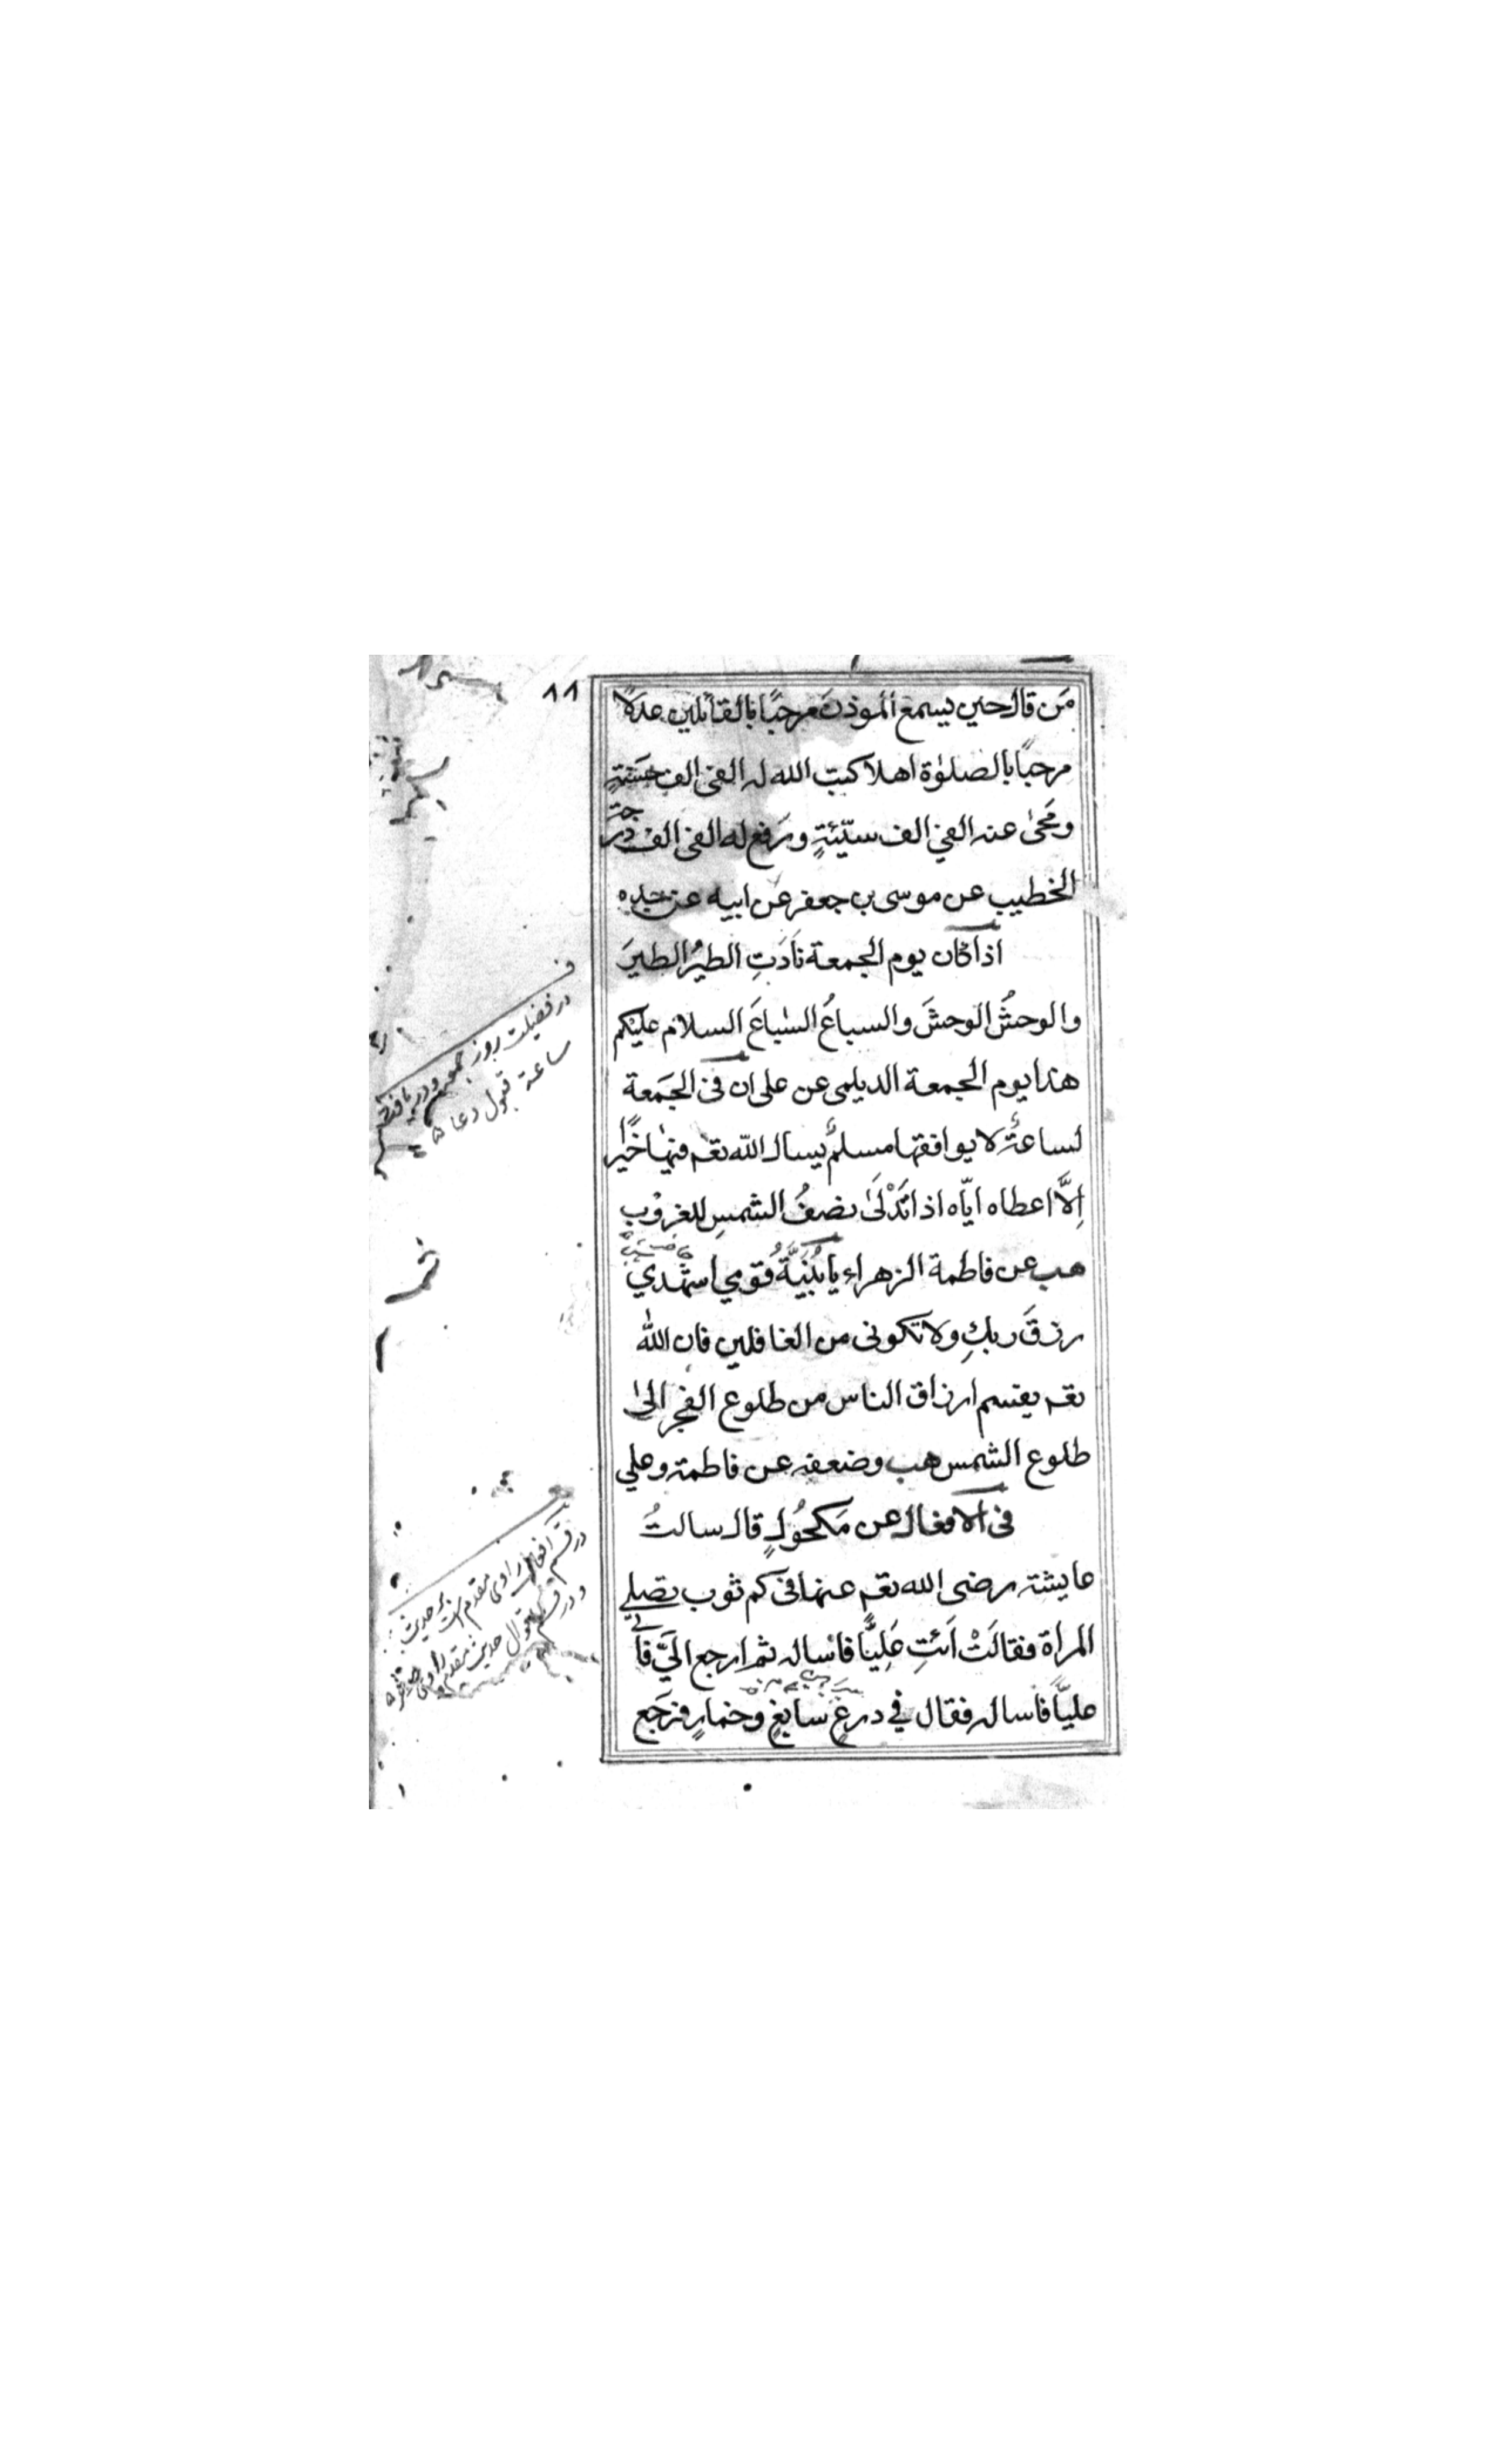 ٨٨
مَن قال حين يسمع الموذن مرحبًا بالقائلين عدلًا
مرحبًا بالصلوٰة اهلا كتب الله له الفى الف حسنةٍ
ومَحىٰ عنه الفي الف سيّئةٍ ورفع له الفى الف درجة
الخطيب عن موسى بن جعفر عن ابيه عن جده
اذا كان يوم الجمعة نَادَتِ الطيرُ الطيرَ
والوحشُ الوحشَ والسباعُ السّباعَ السلام عليكم
هذا يوم الجمعة الديلمى عن على ان فى الجَمعة
لساعةً لا يوافقها مسلمٌ يسال الله تعہ فيها خيرًا
اِلَّا اعطاه ايّاه اذا تَدَلّىٰ نصفُ الشمسِ للغروب
هب عن فاطمة الزهراء يا بُنَيَّةُ قومي اشهدي
رزقَ ربكِ ولا تكونى من الغافلين فان الله
تعہ يقسم ارزاق الناس من طلوع الفجر الىٰ
طلوع الشمس هب وضعفه عن فاطمة وعلي
فى الافعال عن مَكحُولٍ قال سالتُ
عايشة رضى الله تعہ عنها فى كم ثوب تصلي
المراة فقالَتْ اَئتِ عَلِيًّا فاساله ثم ارجع اليَّ فاتى
عليًّا فاساله فقال في درعٍ سابغٍ وخمارٍ فرَجَع
در فضيلت روز جمعه و دريافت
ساعة قبول دعا
در قسم افعال راوى مقدم است بر حديث
و در قسم اقوال حديث مقدم